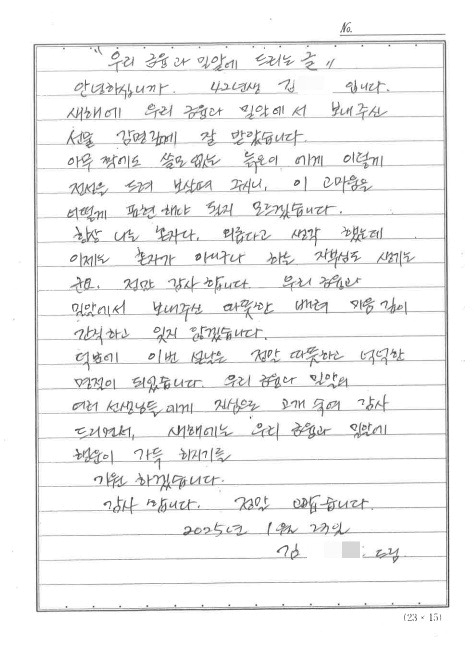 No.
"우리 금융과 밀알에 드리는 글"
안녕하십니까. 42년생 김 입니다.
새해에 우리 금융과 밀알에서 보내주신
선물 감명깊에 잘 받았습니다.
아무 짝에도 쓸모 없는 늙은이 에게 이렇게
정성을 드려 보살펴 주시니, 이 고마움을
어떻게 표현 해야 될지 모르겠습니다.
항상 나는 혼자다, 외롭다고 생각 했는데
이제는 혼자가 아니구나 하는 자부심도 생기는
군요. 정말 감사 합니다 우리 금융과
밀알에서 보내주신 따뜻한 배려 마음 깊이
간직하고 잊지 않겠습니다.
덕분에 이번 설날은 정말 따뜻하고 넉넉한
명절이 되었습니다. 우리 금융과 밀알의
여러 선생님들에게 진심으로 고개 숙여 감사
드리면서, 새해에는 우리 금융과 밀알에
행운이 가득 하시기를
기원 하겠습니다.
감사 합니다. 정말 고맙습니다.
2025년 1월 23일
김 드림
(23 × 15)